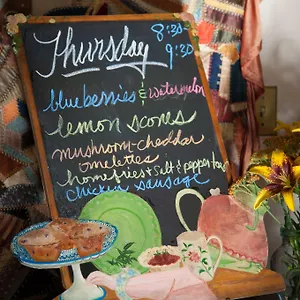 Thursday
8:30-
9:30
blueberries & watermelon
lemon scones
mushroom-cheddar
omelettes
home fries + salt & pepper
chicken sausage